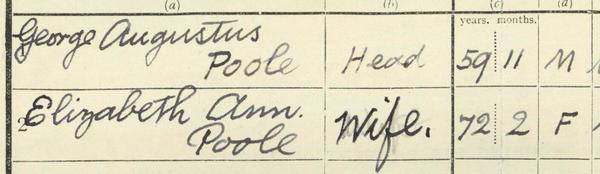 (a) (b) (c) (d)
years. months.
George Augustus
Poole Head 59 11 M
2 Elizabeth Ann.
Poole Wife. 72 2 F